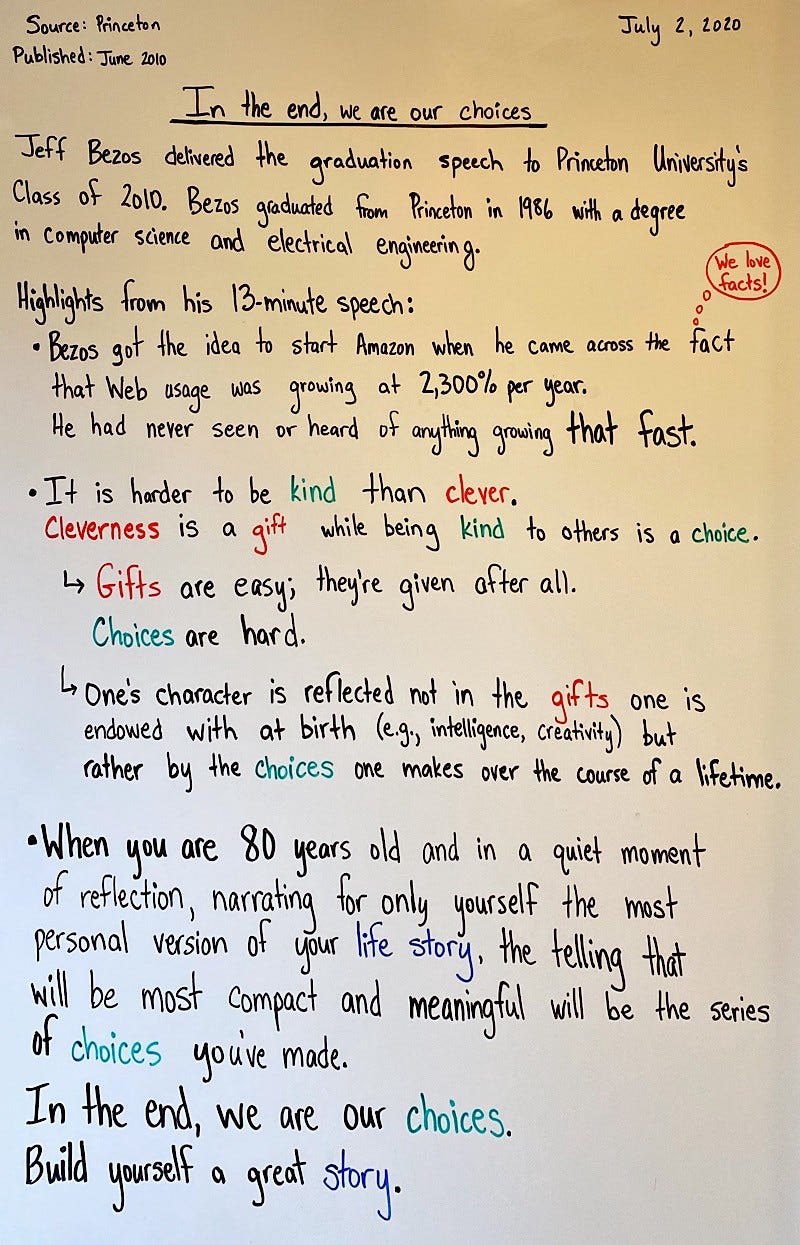 Source: Princeton
July 2, 2020
Published: June 2010
In the end, we are our choices
Jeff Bezos delivered the graduation speech to Princeton University's
Class of 2010. Bezos graduated from Princeton in 1986 with a degree
in computer science and electrical engineering.
We love
facts!
Highlights from his 13-minute speech:
• Bezos got the idea to start Amazon when he came across the fact
that Web usage was growing at 2,300% per year.
He had never seen or heard of anything growing that fast.
• It is harder to be kind than clever.
Cleverness is a gift while being kind to others is a choice.
↳ Gifts are easy; they're given after all.
Choices are hard.
↳ One's character is reflected not in the gifts one is
endowed with at birth (e.g., intelligence, creativity) but
rather by the choices one makes over the course of a lifetime.
• When you are 80 years old and in a quiet moment
of reflection, narrating for only yourself the most
personal version of your life story, the telling that
will be most compact and meaningful will be the series
of choices you've made.
In the end, we are our choices.
Build yourself a great story.